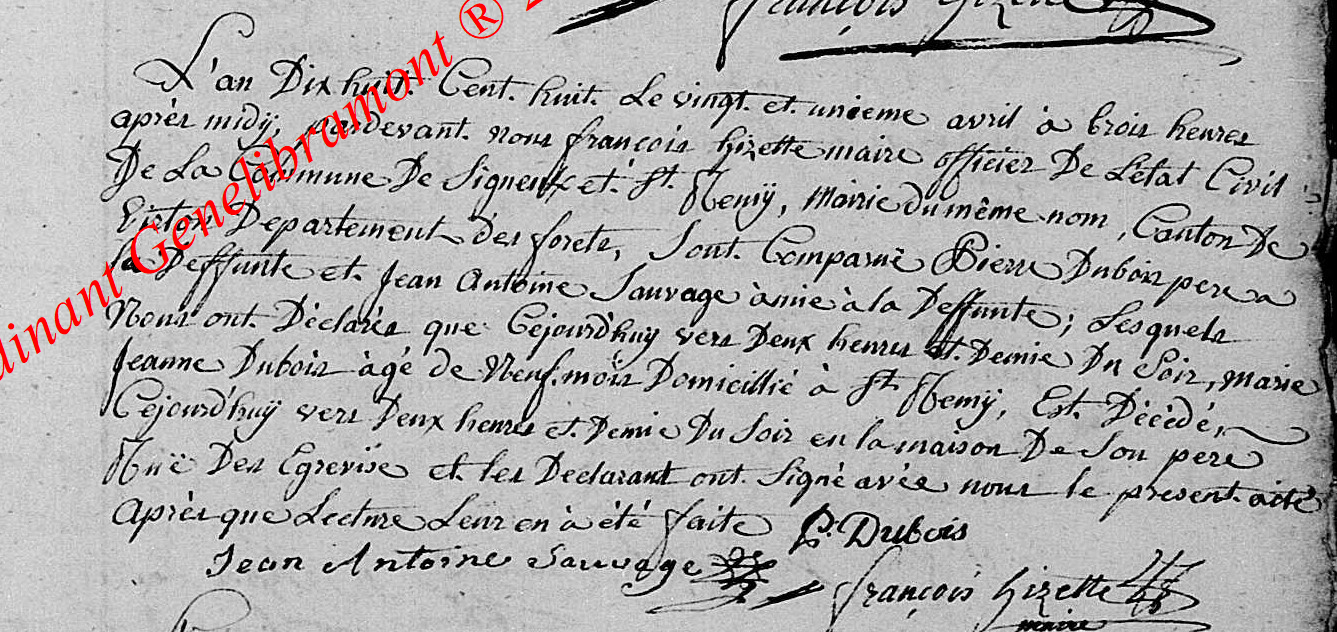 françois hizette
L'an Dix huit. Cent. huit. Le vingt. et. unieme avril à trois heures
après midÿ, pardevant. nous françois hizette maire officier De Letat Civil
De La Commune De Signeulx et. St. Remÿ, Mairie du même nom, Canton De
Virton Departement des forets, Sont. Comparuë Pierre Dubois pere a
la Deffunte et. Jean Antoine Sauvage amie à la Deffunte; Lesquels
Nous ont. Déclarés que Cejourd'huy vers Deux heures et. Demie Du Soir, marie
Jeanne Dubois àgé de Neuf. mois Domicillié à St. Remÿ, Est. Décédé,
Cejourd'huÿ vers Deux heures et. Demie Du Soir en la maison De Son pere
Ruë Des Egrevise et. les Declarant ont. Signé avée nous le present. acte
Après que Lecture Leur en à été faite P. Dubois
Jean Antoine Sauvage
françois hizette
maire
dinant Genelibramont ®